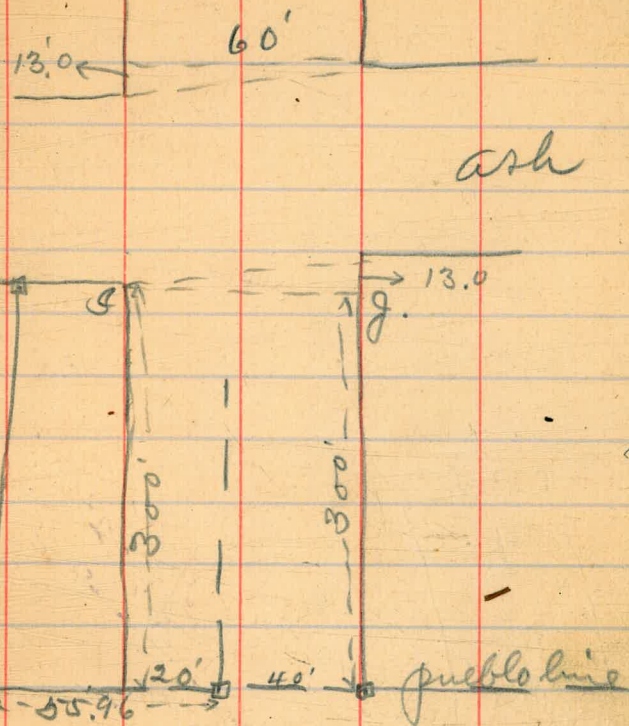 60'
13.0
ash
13.0
S
J.
300'
300'
20'
40'
pueblo line
55.96